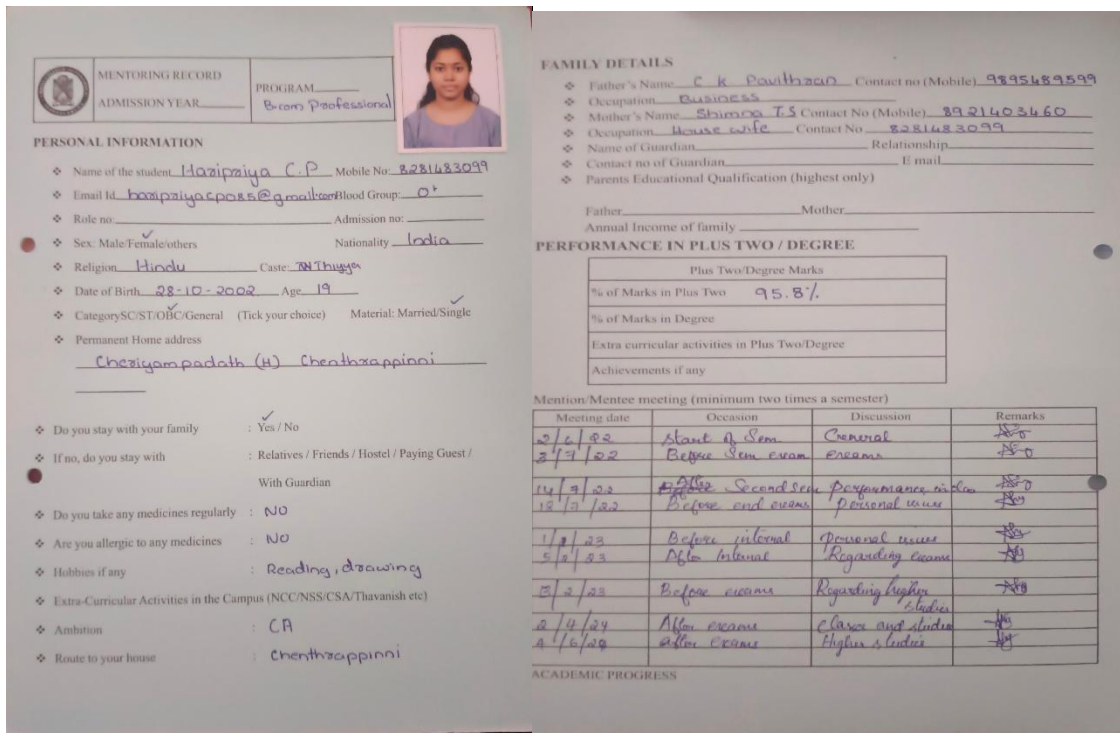 MENTORING RECORD
ADMISSION YEAR
PROGRAM
B.com Professional
PERSONAL INFORMATION
Name of the student Haripriya C.P Mobile No: 8281483099
Email Id haripriyacp085@gmail.com Blood Group: O+
Role no: Admission no:
Sex: Male/Female/others Nationality India
Religion Hindu Caste: Thiyya
Date of Birth 28-10-2002 Age 19
CategorySC/ST/OBC/General (Tick your choice) Material: Married/Single
Permanent Home address
Cheriyampadath (H) Chenthrappinni
Do you stay with your family : Yes / No
If no, do you stay with : Relatives / Friends / Hostel / Paying Guest /
With Guardian
Do you take any medicines regularly : NO
Are you allergic to any medicines : NO
Hobbies if any : Reading, drawing
Extra-Curricular Activities in the Campus (NCC/NSS/CSA/Thavanish etc)
Ambition : CA
Route to your house : Chenthrappinni
FAMILY DETAILS
Father's Name C K Pavithran Contact no (Mobile) 9895489599
Occupation Business
Mother's Name Shimna T.S Contact No (Mobile) 8921403460
Occupation House wife Contact No 8281483099
Name of Guardian Relationship
Contact no of Guardian E mail
Parents Educational Qualification (highest only)
Father Mother
Annual Income of family
PERFORMANCE IN PLUS TWO / DEGREE
Plus Two/Degree Marks
% of Marks in Plus Two 95.8%
% of Marks in Degree
Extra curricular activities in Plus Two/Degree
Achievements if any
Mention/Mentee meeting (minimum two times a semester)
Meeting date Occasion Discussion Remarks
2/6/22 Start of Sem General
3/7/22 Before Sem exam exams
14/7/22 After Second sem performance
12/7/22 Before end exams Personal issues
23 Before internal Personal issues
5/2/23 After Internal Regarding exams
3/2/23 Before exams Regarding higher
studies
2/4/24 After exams
4/6/24 after exams Higher studies
ACADEMIC PROGRESS